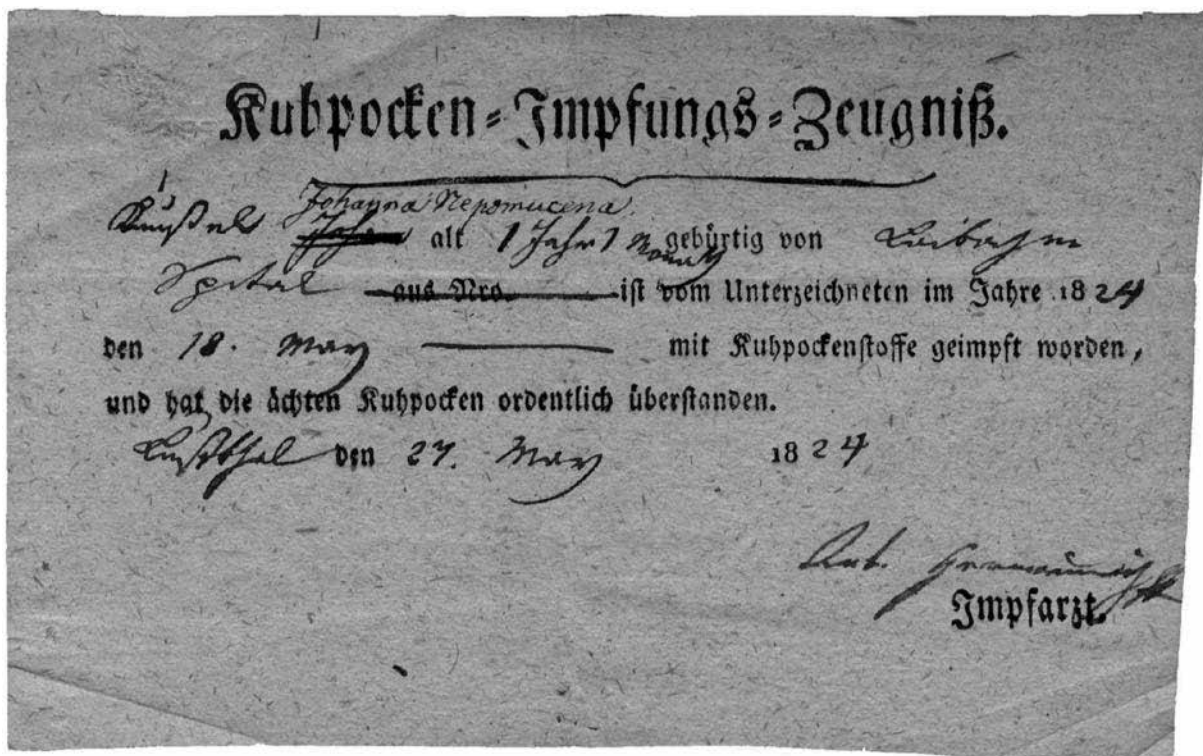 Kuhpocken-Impfungs-Zeugniß.
Johanna Nepomucena.
alt 1 Jahr 1 Monath gebürtig von
Spital aus Nro. ist vom Unterzeichneten im Jahre 1824
den 18. May mit Kuhpockenstoffe geimpft worden,
und hat die ächten Kuhpocken ordentlich überstanden.
Lustthal den 27. May 1824
Ant.
Impfarzt.